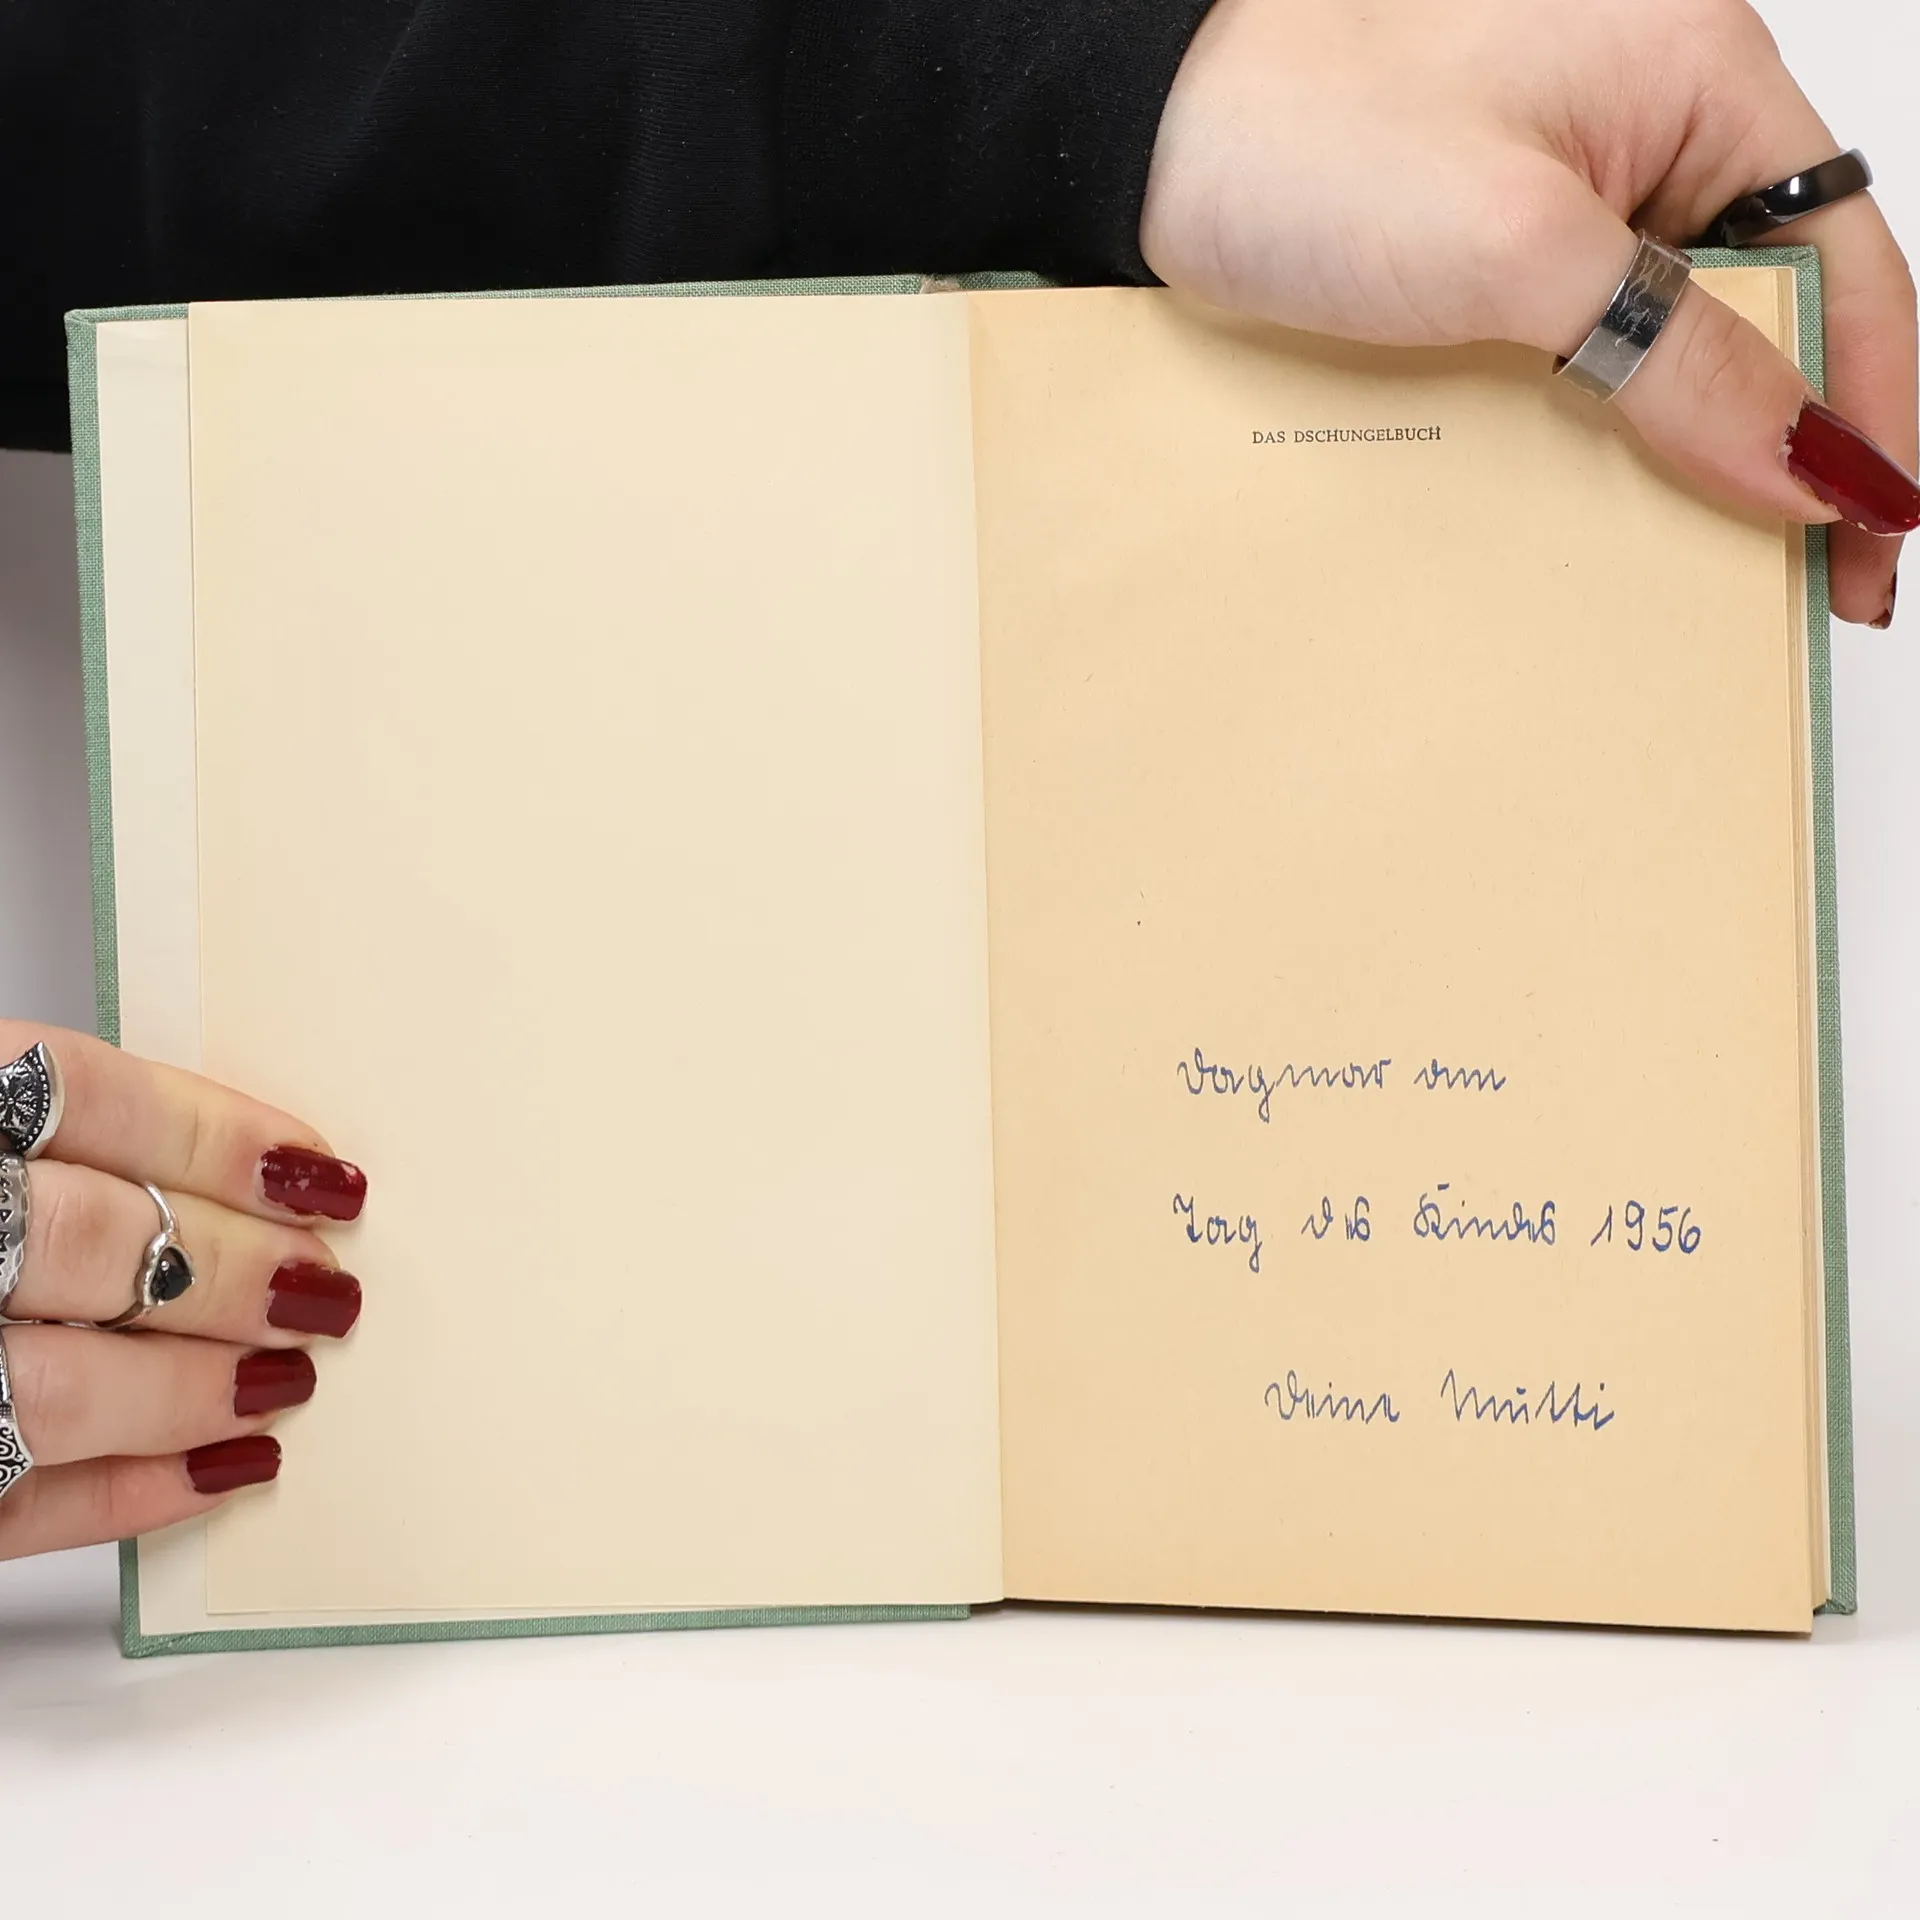 DAS DSCHUNGELBUCH
Dagmar am
Tag des Kindes 1956
Deine Mutti